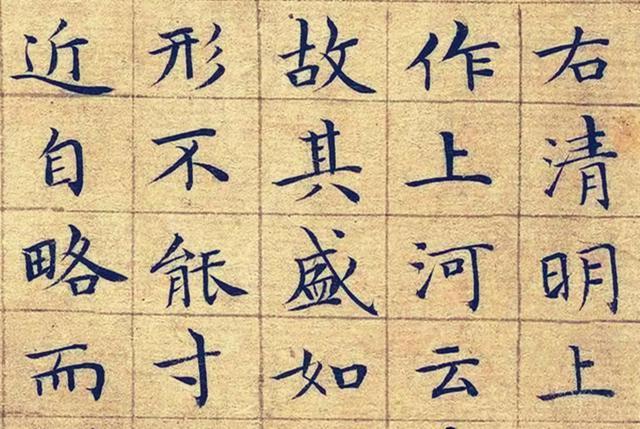 右清明上
作上河云
故其盛如
形不能寸
近自略而